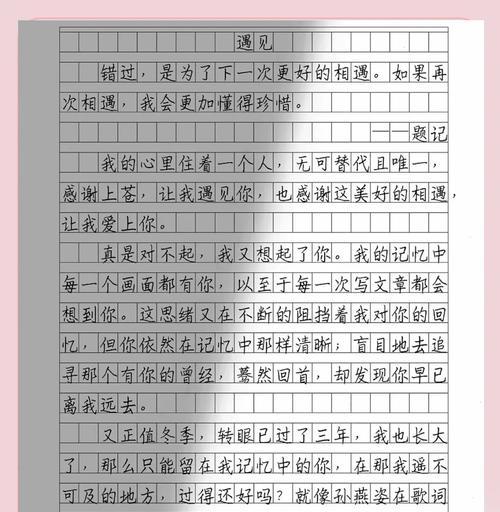 遇见
错过，是为了下一次更好的相遇。如果再
次相遇，我会更加懂得珍惜。
——题记
我的心里住着一个人，无可替代且唯一，
感谢上苍，让我遇见你，也感谢这美好的相遇，
让我爱上你。
真是对不起，我又想起了你。我的记忆中
每一个画面都有你，以至于每一次写文章都会
想到你。这思绪又在不断的阻挡着我对你的回
忆，但你依然在记忆中那样清晰；盲目地去追
寻那个有你的曾经，蓦然回首，却发现你早已
离我远去。
又正值冬季，转眼已过了三年，我也长大
了，那么只能留在我记忆中的你，在那我遥不
可及的地方，过得还好吗？就像孙燕姿在歌词